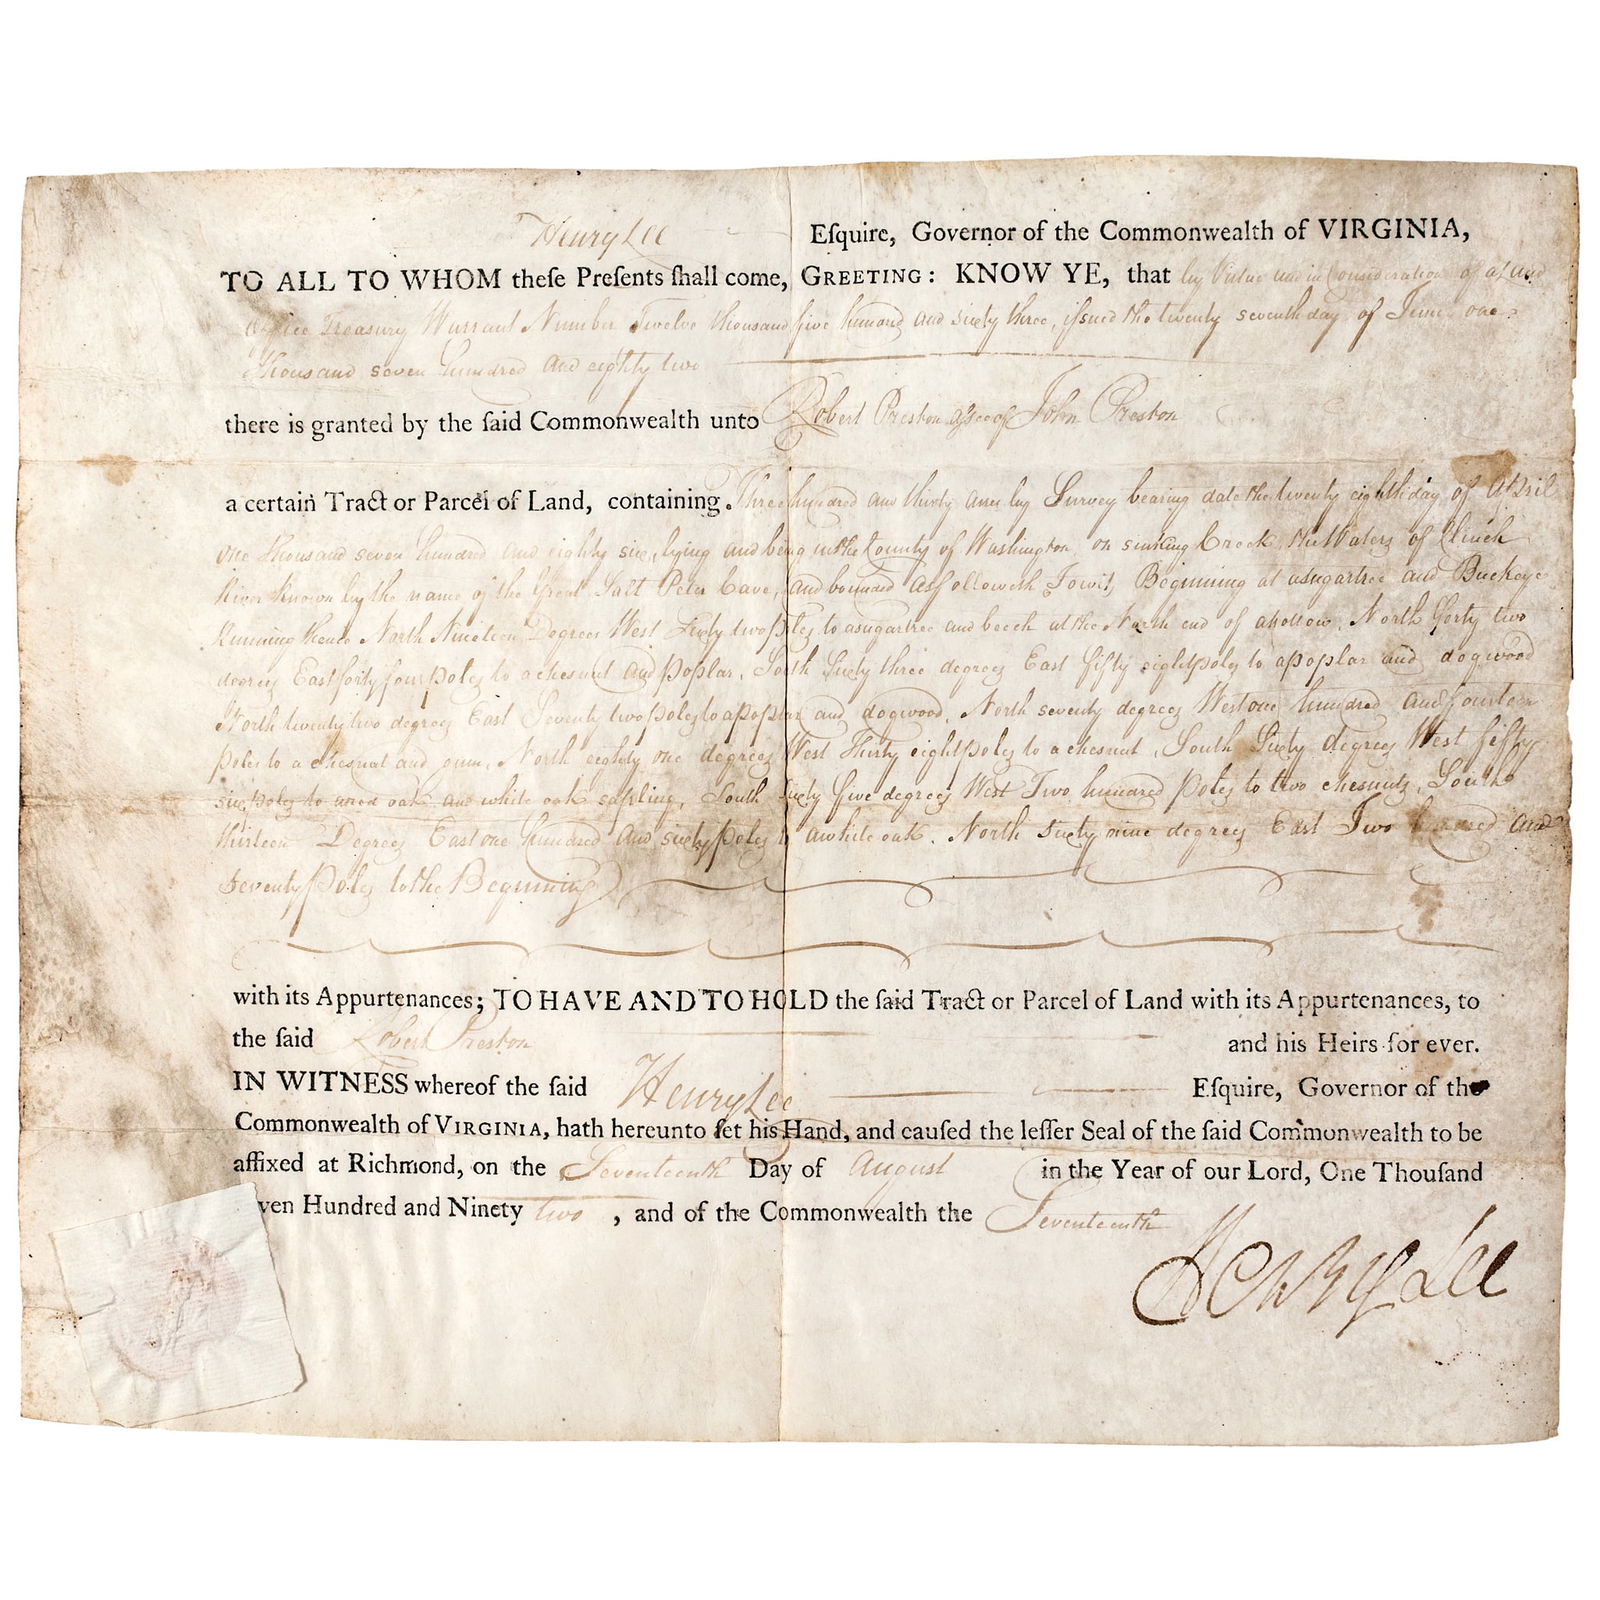 Henry Lee Eſquire, Governor of the Commonwealth of VIRGINIA,
TO ALL TO WHOM theſe Preſents ſhall come, GREETING: KNOW YE, that by Virtue and in Consideration of a Land
Office Treasury Warrant Number Twelve thousand five hundred and sixty three, iſsued the twenty seventh day of June one
thousand seven hundred and eighty two
there is granted by the ſaid Commonwealth unto Robert Preston aſsee of John Preston
a certain Tract or Parcel of Land, containing. Three hundred and thirty acres by Survey bearing date the twenty eighth day of April
one thousand seven hundred and eighty six, lying and being in the County of Washington, on sinking Creek, the Waters of Clinch
River known by the name of the Great Salt Peter Cave, and bounded as followeth Towit, Beginning at a sugartree and Buckeye
Running thence North Nineteen Degrees West Sixty two poles to a sugartree and beech at the North end of a hollow, North forty two
degrees East forty four poles to a chesnut and poplar, South Sixty three degrees East fifty eight poles to a poplar and dogwood
North twenty two degrees East Seventy two poles to a poplar and dogwood, North seventy degrees West one hundred and fourteen
poles to a chesnut and gum, North eighty one degrees West Thirty eight poles to a chesnut, South Sixty degrees West fifty
six poles to a red oak and white oak sapling, South sixty five degrees West Two hundred poles to two chesnuts, South
thirteen Degrees East one hundred and sixty poles to a white oak, North sixty nine degrees East Two hundred and
seventy poles to the Beginning
with its Appurtenances; TO HAVE AND TO HOLD the ſaid Tract or Parcel of Land with its Appurtenances, to
the ſaid Robert Preston and his Heirs for ever.
IN WITNESS whereof the ſaid Henry Lee Eſquire, Governor of the
Commonwealth of VIRGINIA, hath hereunto ſet his Hand, and cauſed the leſſer Seal of the ſaid Commonwealth to be
affixed at Richmond, on the Seventeenth Day of August in the Year of our Lord, One Thouſand
ven Hundred and Ninety two, and of the Commonwealth the Seventeenth
Henry Lee